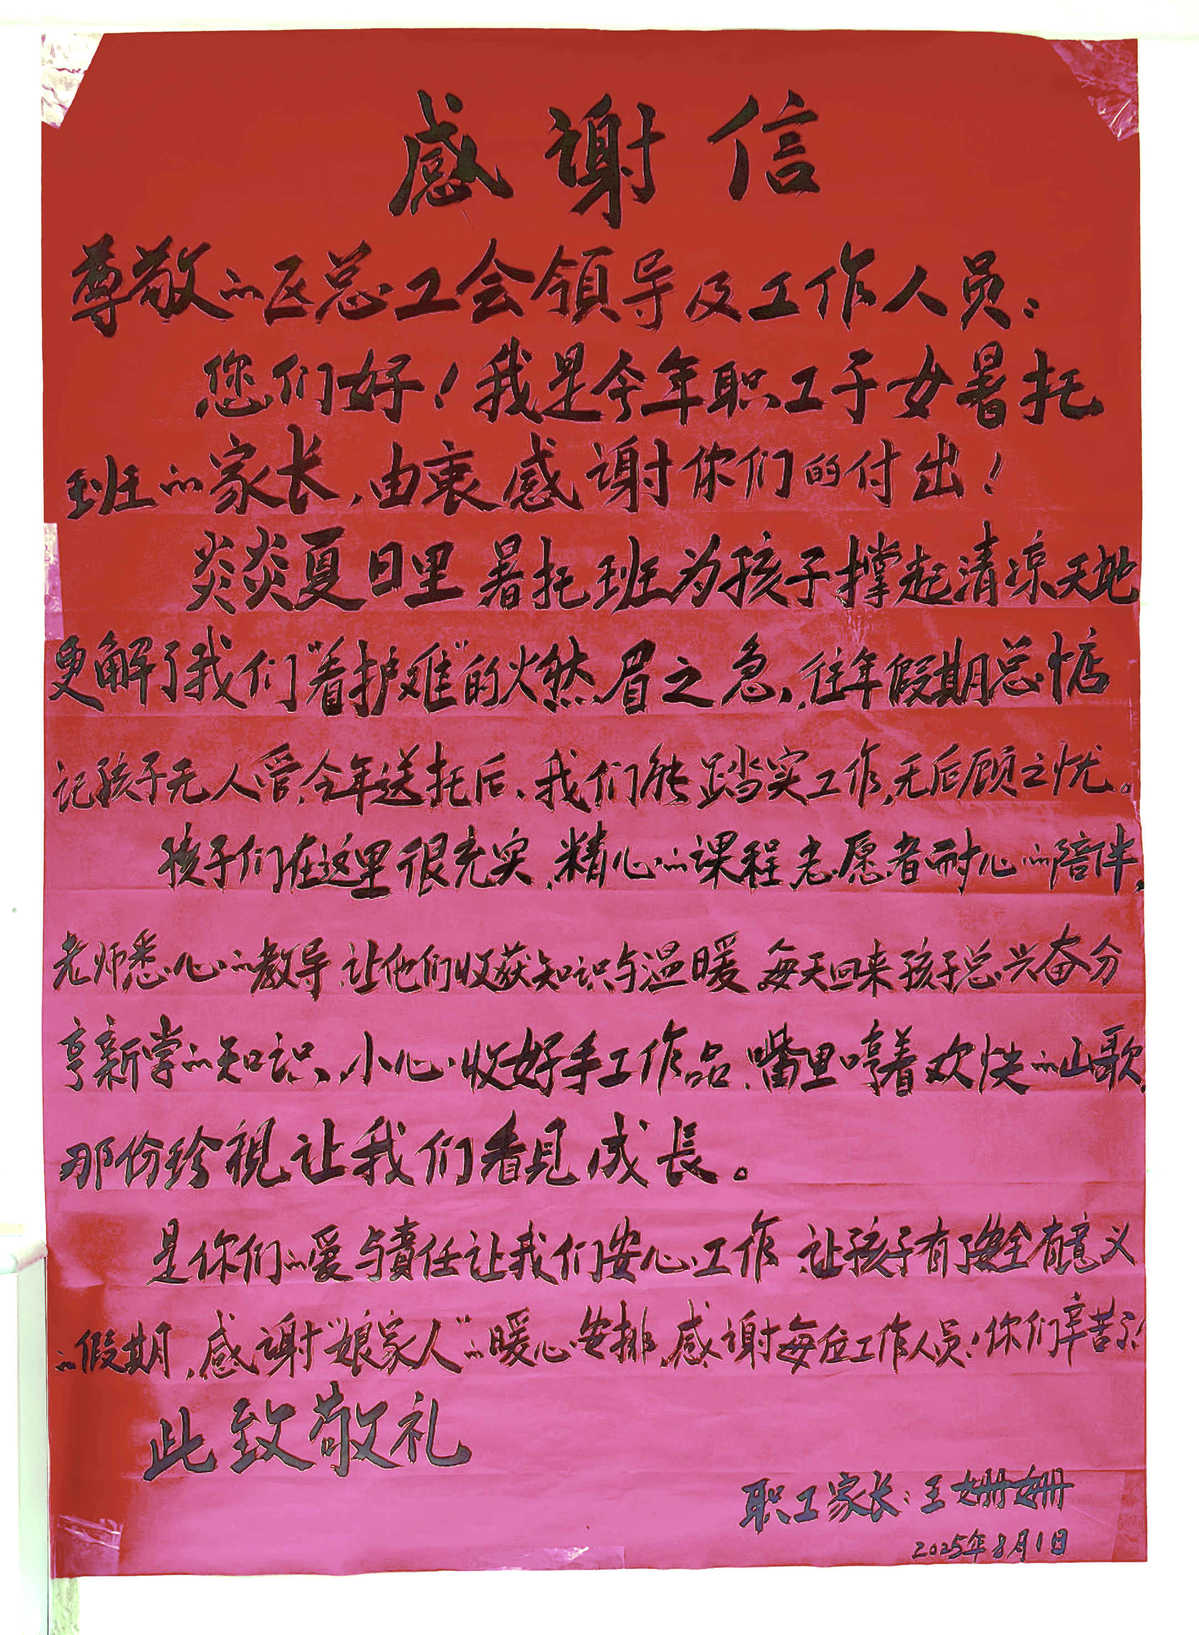 感谢信
尊敬的区总工会领导及工作人员：
您们好！我是今年职工子女暑托
班的家长，由衷感谢你们的付出！
炎炎夏日里暑托班为孩子撑起清凉天地
更解了我们“看护难”的燃眉之急，往年假期总惦
记孩子无人管，今年送托后、我们能踏实工作，无后顾之忧。
孩子们在这里很充实，精心的课程志愿者耐心的陪伴，
老师悉心的教导，让他们收获知识与温暖，每天回来孩子总兴奋分
享新学的知识，小心收好手工作品，嘴里哼着欢快的山歌，
那份珍視让我们看見成長。
是你们的爱与責任让我们安心工作，让孩子有了安全有意义
的假期，感谢“娘家人”的暖心安排，感谢每位工作人员！你们辛苦了！
此致敬礼
职工家长：王姗姗
2025年8月1日